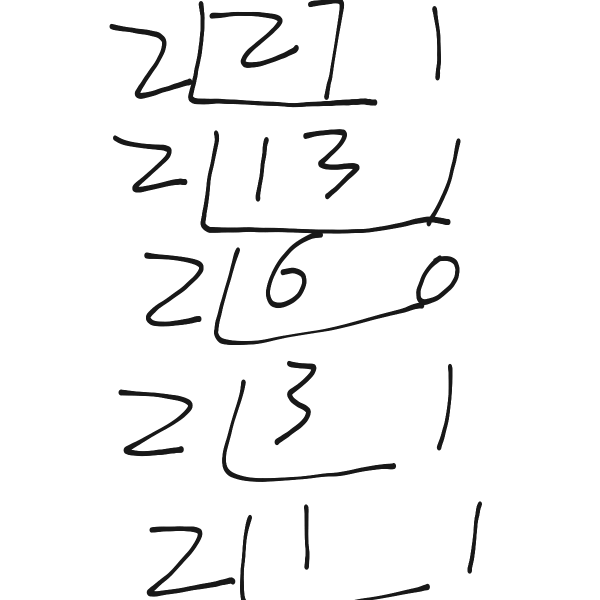 2 27 1
2 13 1
2 6 0
2 3 1
2 1 1